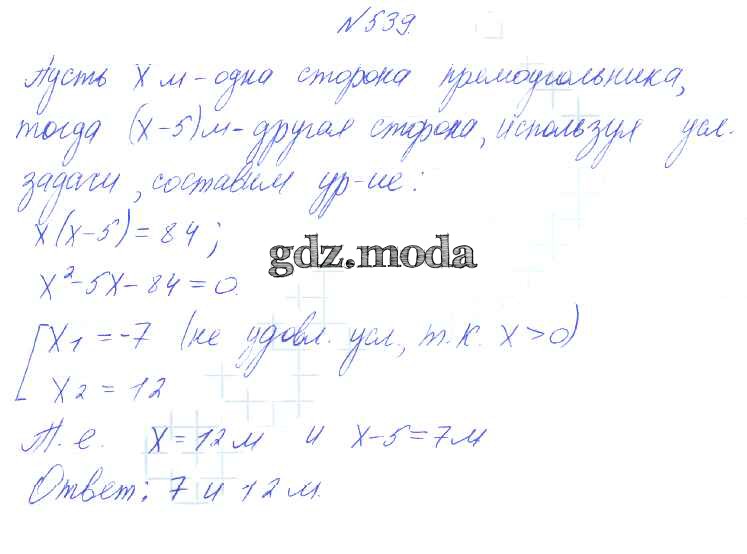 №539.
Пусть x м - одна сторона прямоугольника,
тогда (x-5)м - другая сторона, используя усл.
задачи, составим ур-ие:
x(x-5)=84;
gdz.moda
x²-5x-84=0.
x₁=-7 (не удовл. усл., т.к. x>0)
x₂=12
Т.е. x=12м и x-5=7м
Ответ: 7 и 12 м.